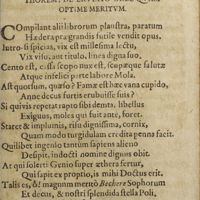 OPTIME MERITVM.
Compilant alii librorum plaustra, paratum
Hæc prægrandis futile vendit opus.
Intro-si spicias, vix est millesima lectu,
Vix viso, aut titulo, linea digna suo.
Cento est, è scopo nux est, scopæque salutæ
Atque infelici parte labore Mola.
Ast quorsum, quæso? Famæ est hæc vana cupido,
Anne decus furtis erubuisse suis?
Si quivis repetat rapto sibi demtis libellus
Exiguus, moles qui fuit ante, foret.
Staret & implumis, risu dignissima, cornix,
Quam modo turgidulam credita penna facit.
Quilibet ingenio tantum sapiens alieno
Desipit, indocti nomine dignus obit.
At qui solerti Genio super æthera fertur,
Qui sapit ex proprio, is mihi Doctus erit.
Talis es, ô! magnum meritò Bechere Sophorum
Et decus, & nostri splendida stella Poli,